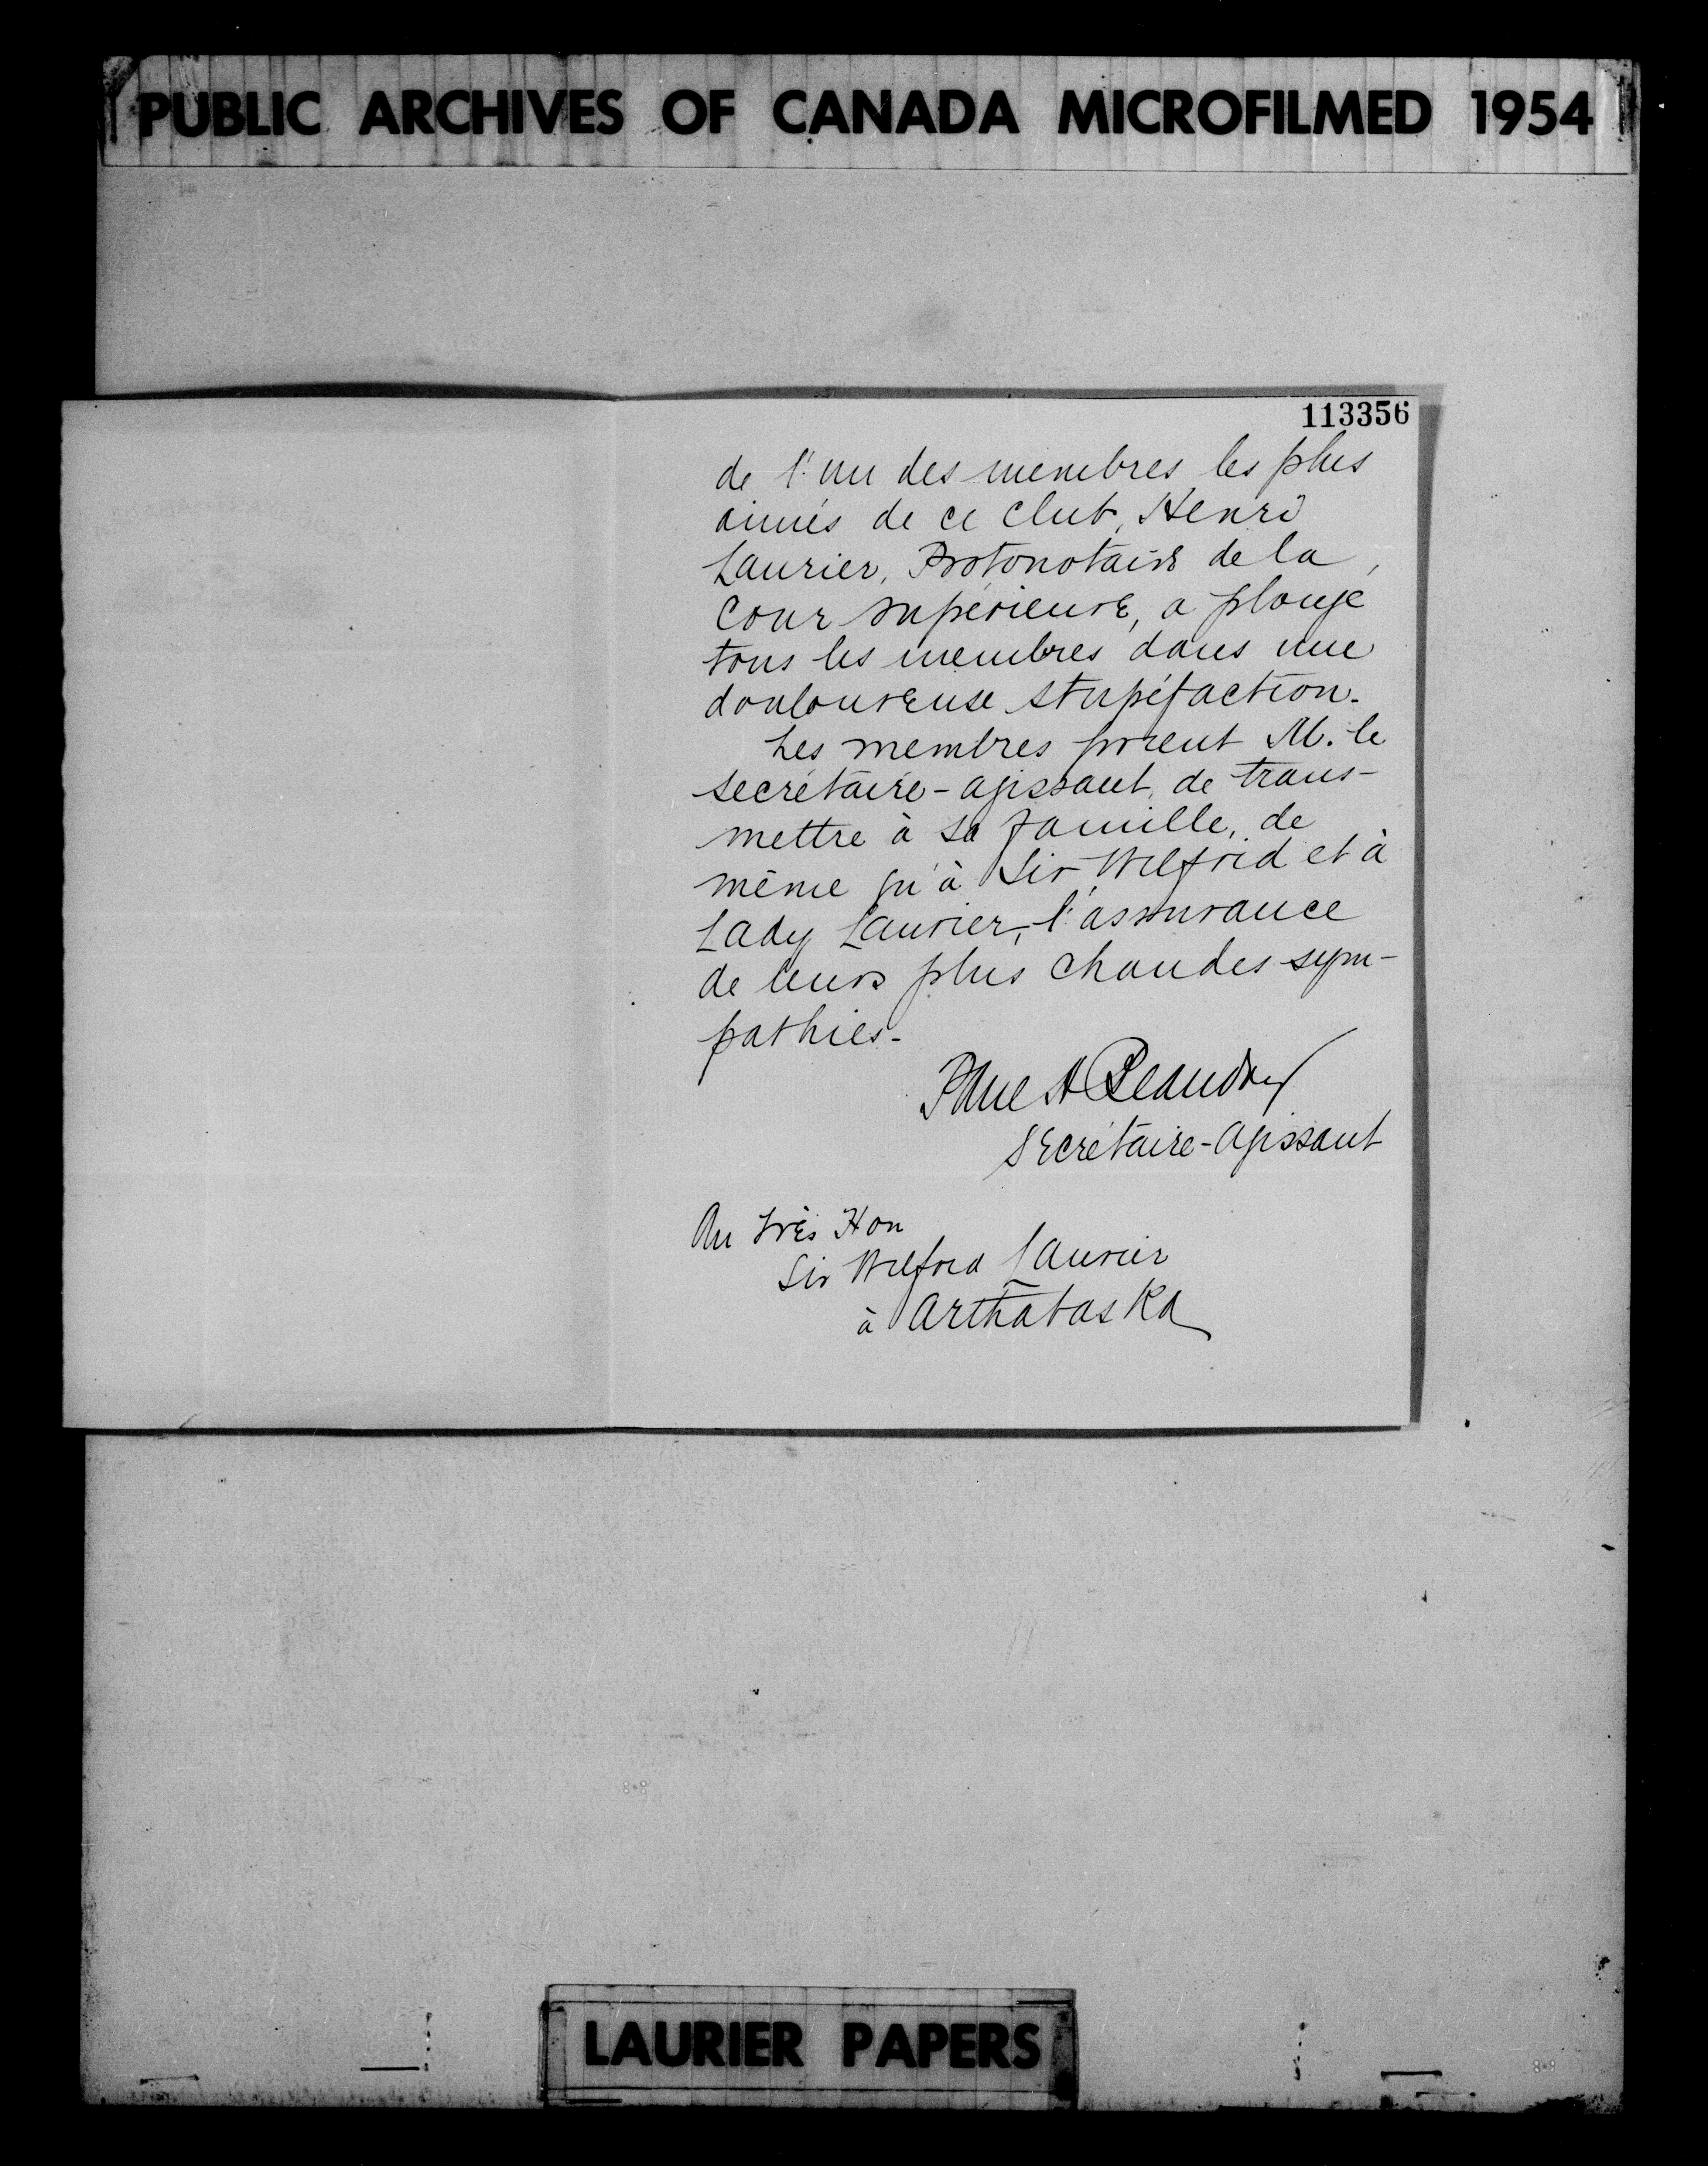 PUBLIC ARCHIVES OF CANADA MICROFILMED 1954
113356
de l'un des membres les plus
aimés de ce club, Henri
Laurier, Protonotaire de la
Cour supérieure, a plongé
tous les membres dans une
douloureuse stupéfaction.
Les membres prient M. le
secrétaire-agissant, de trans-
mettre à sa famille, de
même qu'à Sir Wilfrid et à
Lady Laurier, l'assurance
de leurs plus chaudes sym-
pathies.
Paul A Beaudry
Secrétaire-Agissant
Au très Hon
Sir Wilfrid Laurier
à Arthabaska
LAURIER PAPERS